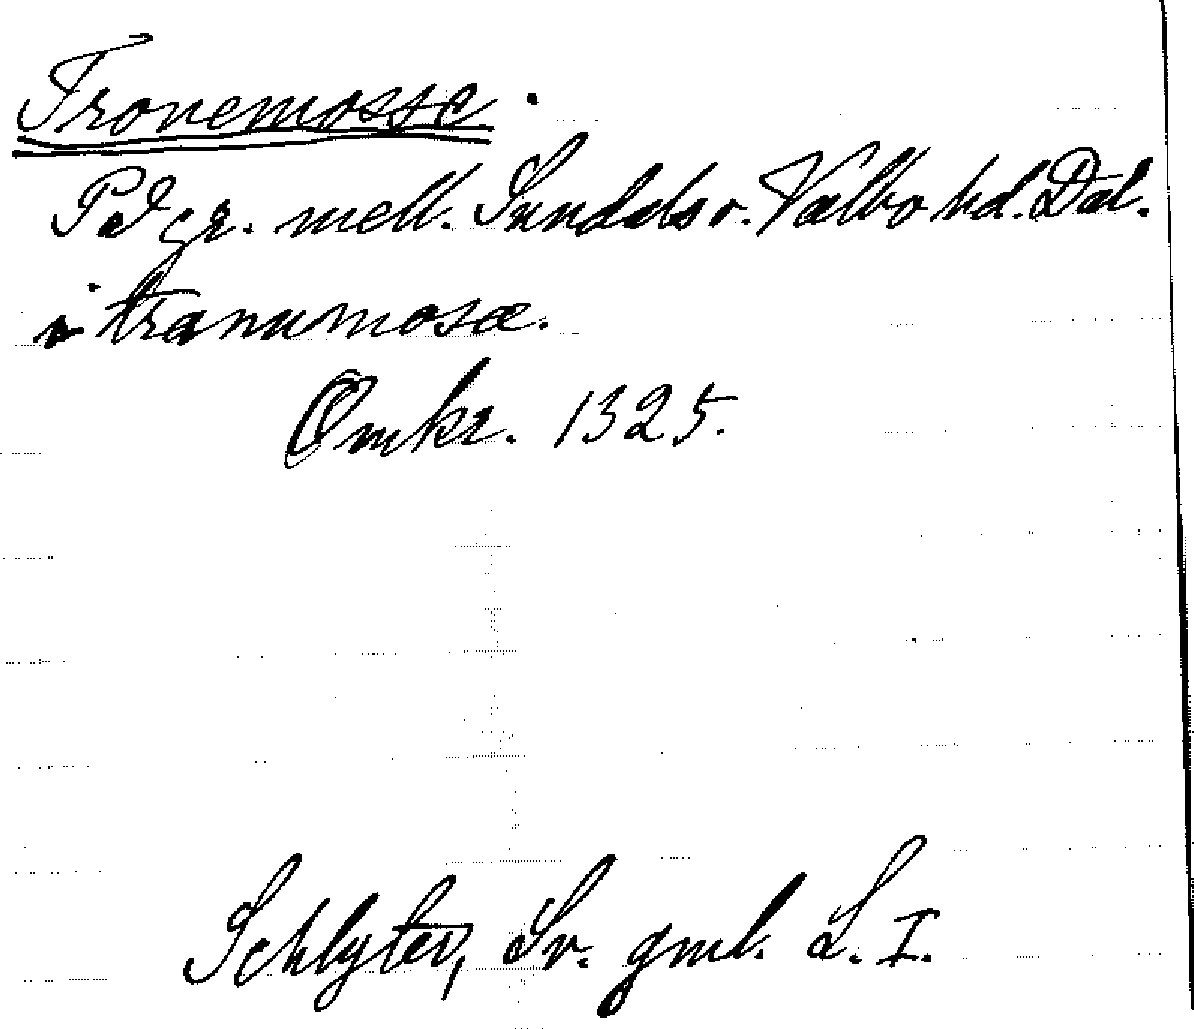 Tronemosse.
På gr. mell. Sundals o. Valbo hd. Dal.
i tranumose.
Omkr. 1325.
Schlyter, Sv. gml. L. I.